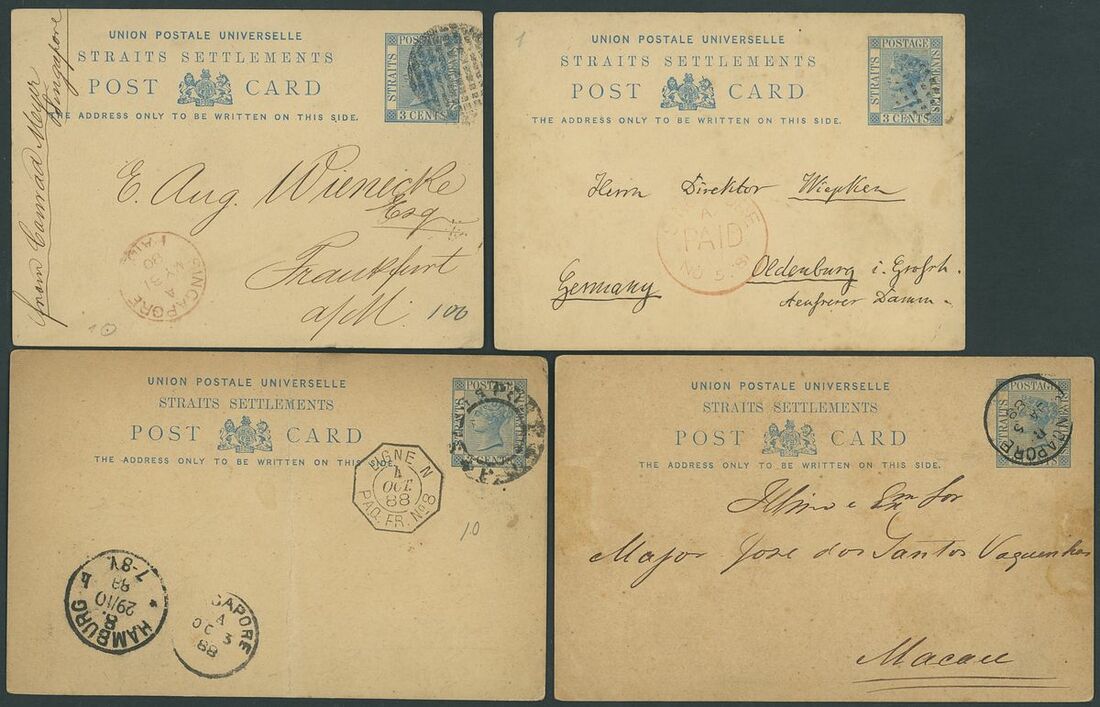 UNION POSTALE UNIVERSELLE
STRAITS SETTLEMENTS
POST CARD
THE ADDRESS ONLY TO BE WRITTEN ON THIS SIDE.
POSTAGE
3 CENTS
From Conrad Meyer
Singapore
E. Aug. Wienecke
Esq
Frankfurt
a/M.
100
SINGAPORE
A
81
PAID
1
UNION POSTALE UNIVERSELLE
STRAITS SETTLEMENTS
POST CARD
THE ADDRESS ONLY TO BE WRITTEN ON THIS SIDE.
STRAITS
POSTAGE
3 CENTS
Herrn Direktor Wiepken
A
PAID
NO 5
Oldenburg i. Grofsh.
Germany
UNION POSTALE UNIVERSELLE
STRAITS SETTLEMENTS
POST CARD
THE ADDRESS ONLY TO BE WRITTEN ON THIS SIDE.
POSTAGE
LIGNE N
4
OCT.
88
PAQ. FR. No 8
10
HAMBURG
8.
29/10
88
7-8V.
GAPORE
A
OC 3
88
UNION POSTALE UNIVERSELLE
STRAITS SETTLEMENTS
POST CARD
THE ADDRESS ONLY TO BE WRITTEN ON THIS SIDE.
STRAITS
POSTAGE
SINGAPORE
Major Jose dos Santos Vaquinhas
Macau